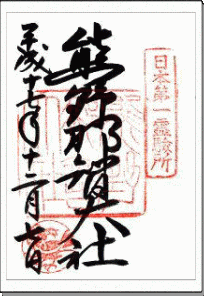 日本第一霊験所
熊野那智大社
平成十七年十二月七日